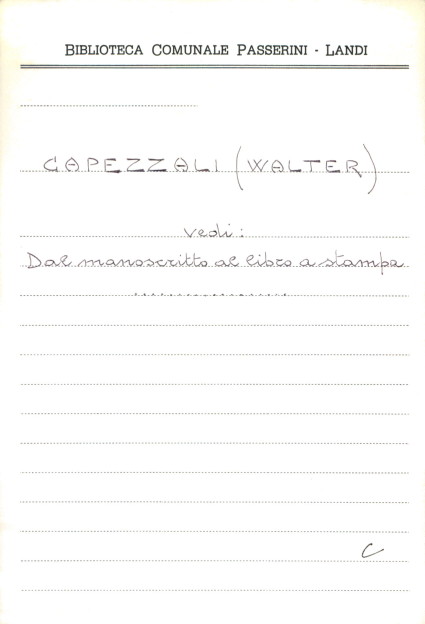 BIBLIOTECA COMUNALE PASSERINI - LANDI
CAPEZZALI (WALTER)
vedi:
Dal manoscritto al libro a stampa
................
C